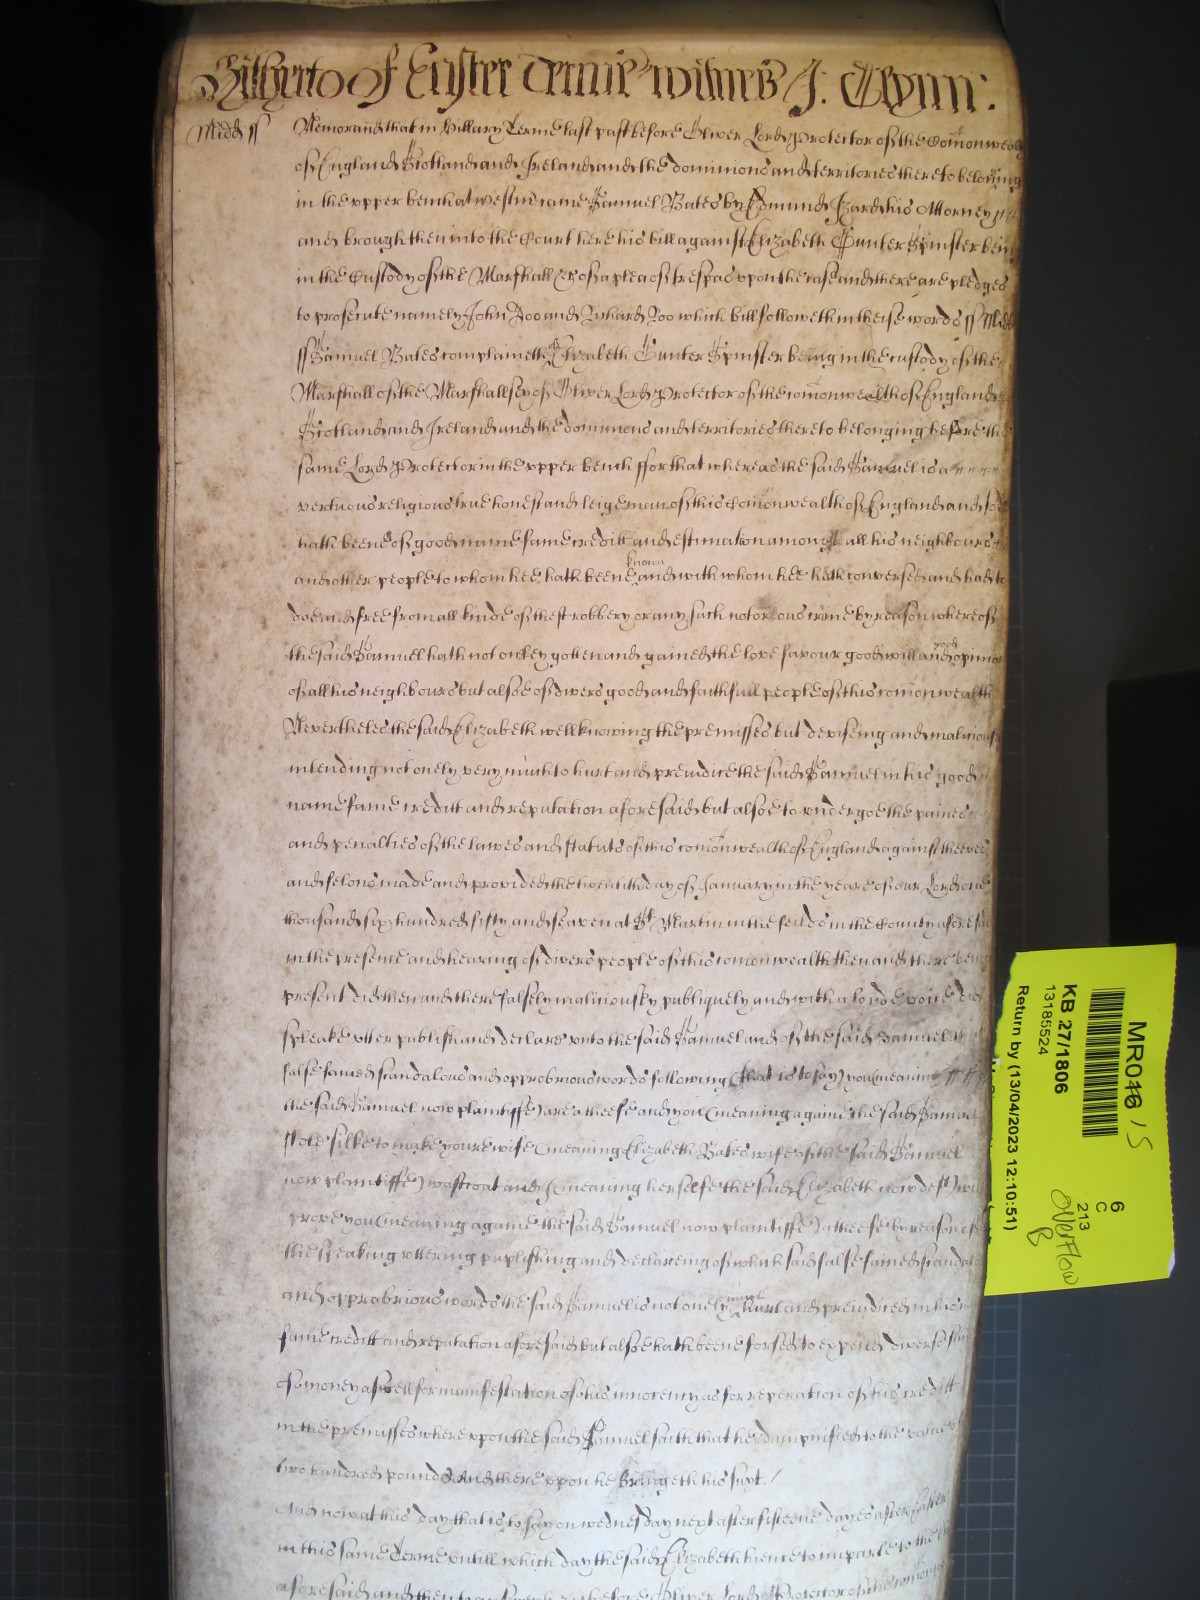 Hitherto of Easter Terme witnes J: Glynn:
Midd ss Memorand that in Hillary Terme last past before Oliver Lord Protector of the Comonwealth
of England Scotland and Ireland and the dominions and territories thereto belonging
in the upper bench at Westmr came Samuel Bates by Edmund Izard his Attorney
and brought then into the Court here his bill against Elizabeth Gunter Spinster being
in the Custody of the Marshall &c of a plea of trespas upon the case and there are pledges
to prosecute namely John Doo and Richard Roo which bill followeth in theise words ss Midd
ss Samuel Bates complaineth of Elizabeth Gunter Spinster being in the custody of the
Marshall of the Marshallsey of Oliver Lord Protector of the comonwealth of England
Scotland and Ireland and the dominions and territories thereto belonging before the
same Lord Protector in the upper bench ffor that whereas the said Samuel is a
vertuous religious true honest and leige man of this Comonwealth of England and soe
hath beene of good name fame creditt and estimation amongst all his neighbours
and other people to whom hee hath beene known and with whom hee hath conversed and had to
doe and free from all kinde of theft robbery or any such notorious crime by reason whereof
the said Samuel hath not onley gotten and gained the love favour goodwill and good opinion
of all his neighbours but alsoe of divers good and faithfull people of this comonwealth
Nevertheles the said Elizabeth well knowing the premisses but deviseing and maliciously
intending not onely very much to hurt and prejudice the said Samuel in his good
name fame creditt and reputation aforesaid but alsoe to undergoe the paines
and penalties of the lawes and statuts of this comonwealth of England against theeves
and felons made and provided the twentith day of January in the yeare of our Lord one
thousand six hundred fifty and seaven at St Martin in the feilds in the County aforesaid
in the presence and hearing of divers people of this comonwealth then and there being
present did then and there falsely maliciously publiquely and with a loude voice
speake utter publish and declare unto the said Samuel and of the said Samuel
false fained scandalous and opprobrious words following (that is to say) you (meaning
the said Samuel now plaintiffe) are a theefe and you (meaning againe the said Samuel
stole silke to make youre wife (meaning Elizabeth Bates wife of the said Samuel
now plaintiffe) wastcoat and I (meaning herselfe the said Elizabeth now deft) will
prove you (meaning againe the said Samuel now plaintiffe) a theefe by reason of
the speaking uttering publishing and declareing of which said false fained scandalous
and opprobrious words the said Samuel is not onely much hurt and prejudiced in his
fame creditt and reputation aforesaid but alsoe hath beene forsed to expend diverse
of money aswell for manifestation of his innocency as for reperation of his creditt
in the premisses whereupon the said Samuel saith that he is dampnified to the value of
two hundred pounds And thereupon he bringeth his suyt /
And now at this day that is to say on wednesday next after fifteene dayes after Easter
in this same Terme untill which day the said Elizabeth licence to imparle to the
aforesaid and then to before Oliver Lord Protector of the comonwealth
MR016 15
KB 27/1806
13185524
Return by (13/04/2023 12:10:51)
6
C
213
OverFlow
B